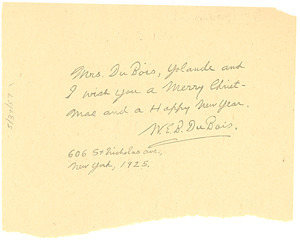 Mrs. DuBois, Yolande and
I wish you a Merry Christ-
mas and a Happy New Year.
W.E.B. DuBois.
606 St Nicholas ave,
New York, 1925.